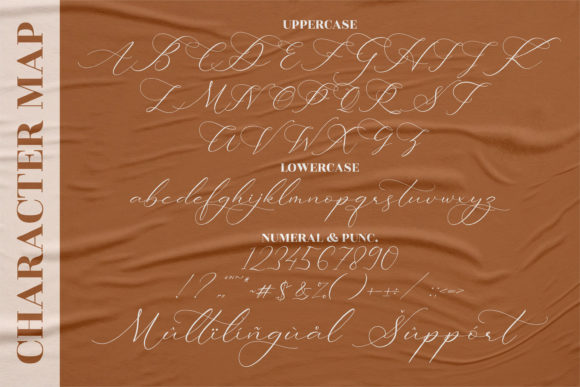 CHARACTER MAP
UPPERCASE
A B C D E F G H I J K
L M N O P Q R S T
U V W X Y Z
LOWERCASE
abcdefghijklmnopqrstuvwxyz
NUMERAL & PUNC.
1234567890
! ? . , " " ' ' ~ # $ & % ( ) + ± ÷ / : ; < = >
Mùltïlïñgùål Šùppórt